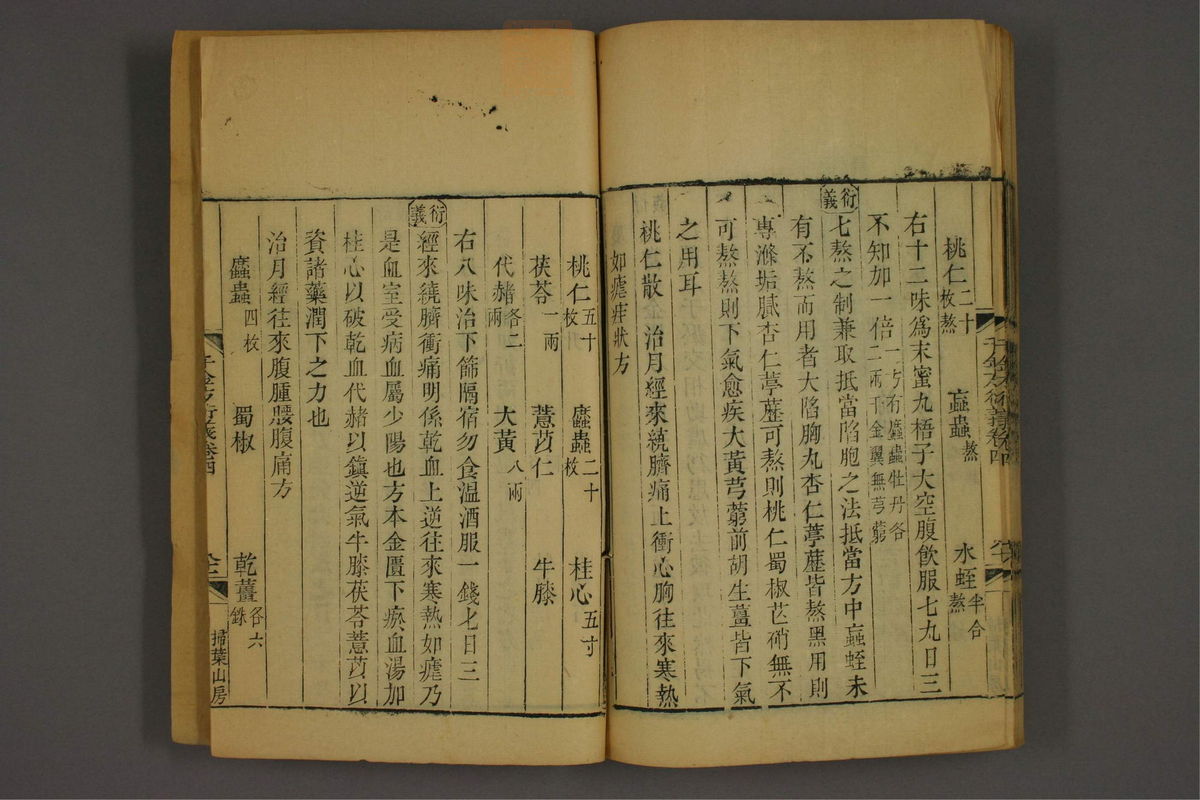 桃仁二十枚熬 蝱蟲熬 水蛭半合熬
右十二味爲末蜜丸梧子大空腹飲服七丸日三
不知加一倍一方有䗪蟲牡丹各二兩千金翼無芎藭
衍義七熬之制兼取抵當陷胞之法抵當方中蝱蛭未
有不熬而用者大陷胸丸杏仁葶藶皆熬黑用則
專滌垢膩杏仁葶藶可熬則桃仁蜀椒芒硝無不
可熬熬則下氣愈疾大黃芎藭前胡生薑皆下氣
之用耳
桃仁散 治月經來繞臍痛上衝心胸往來寒熱
如瘧疰狀方
桃仁五十枚 䗪蟲二十枚 桂心五寸
茯苓一兩 薏苡仁 牛膝
代赭各二兩 大黃八兩
右八味治下篩隔宿勿食温酒服一錢匕日三
衍義經來繞臍衝痛明係乾血上逆往來寒熱如瘧乃
是血室受病血屬少陽也方本金匱下瘀血湯加
桂心以破乾血代赭以鎮逆氣牛膝茯苓薏苡以
資諸藥潤下之力也
治月經往來腹腫腰腹痛方
䗪蟲四枚 蜀椒 乾薑各六銖
千金方衍義卷四
掃葉山房